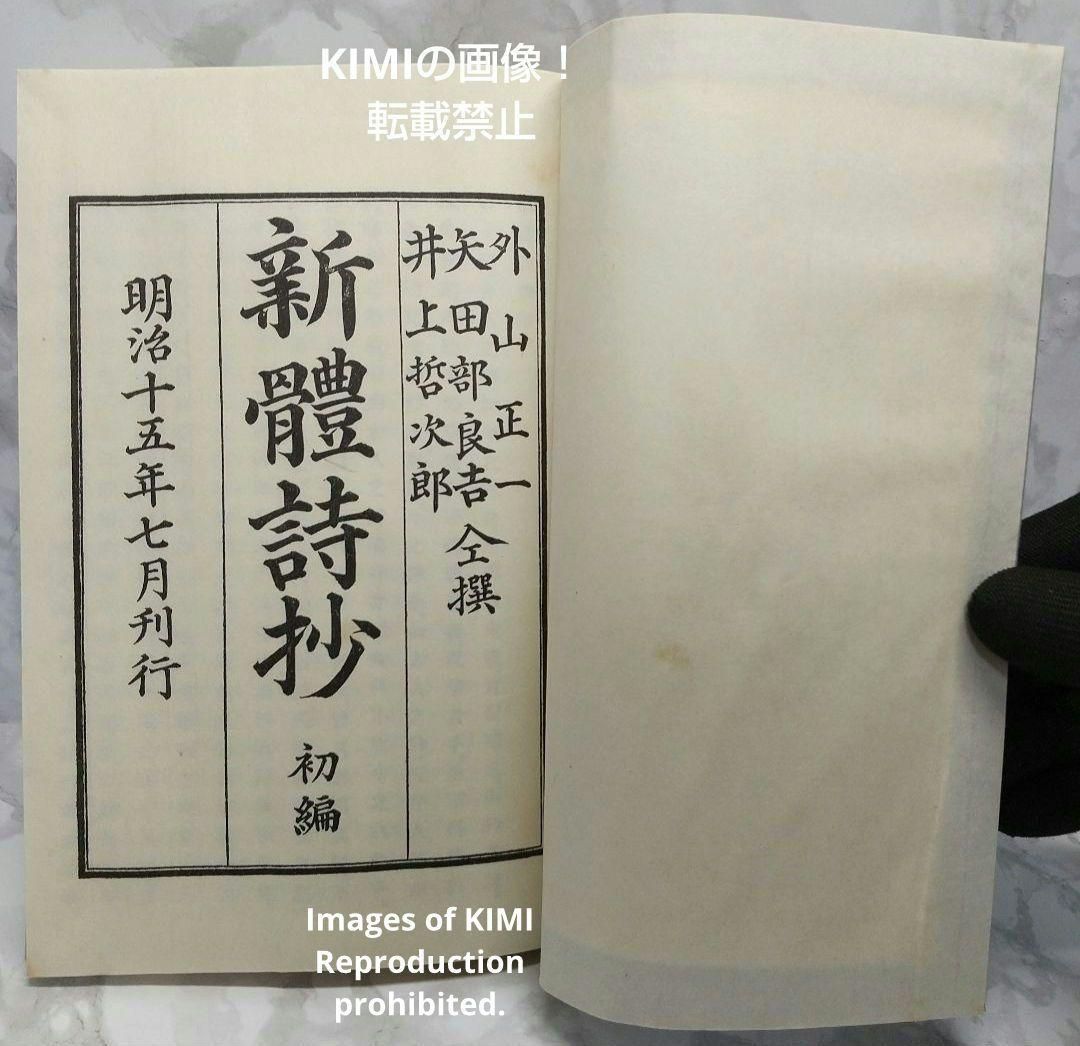 KIMIの画像！
転載禁止
外山正一
矢田部良吉仝撰
井上哲次郎
新體詩抄 初編
明治十五年七月刊行
Images of KIMI
Reproduction
prohibited.